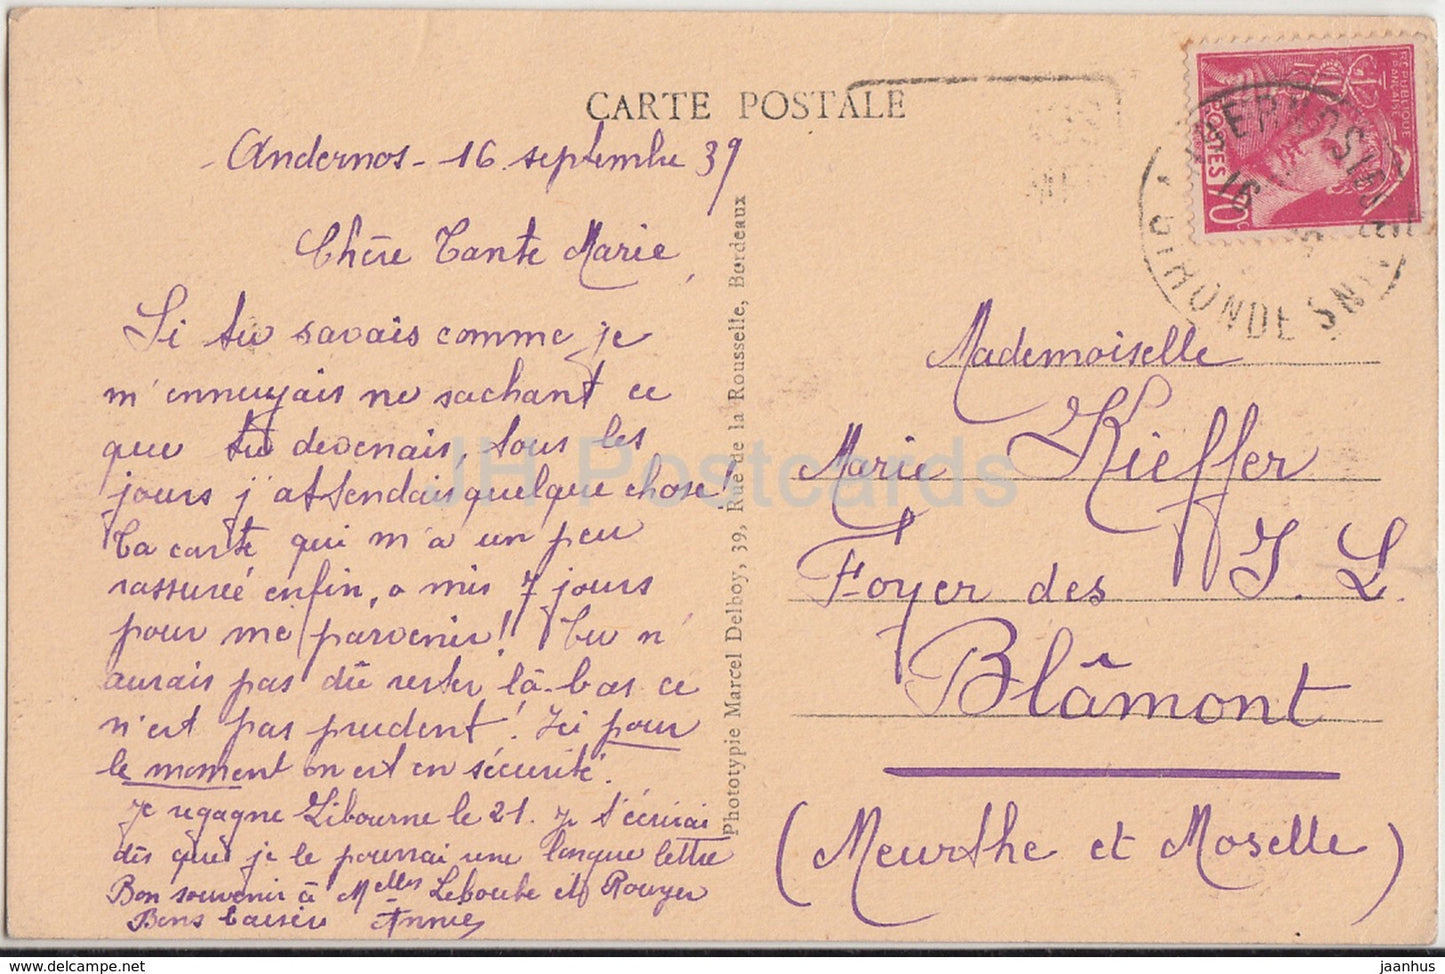 CARTE POSTALE
- Andernos - 16 septembre 39
Chère Tante Marie,
Si tu savais comme je
m'ennuyais ne sachant ce
que tu devenais, tous les
jours j'attendais quelque chose!
Ta carte qui m'a un peu
rassurée enfin, a mis 7 jours
pour me parvenir! Tu n'
aurais pas dû rester là-bas ce
n'est pas prudent! Ici pour
le moment on est en sécurité.
Je regagne Libourne le 21. Je t'écrirai
dès que je le pourrai une longue lettre
Bon souvenir à Melles Leboube et Rouyer
Bons baisers Annie
Phototypie Marcel Delboy, 39, Rue de la Rousselle, Bordeaux
Mademoiselle
Marie Kieffer
Foyer des J. L.
Blâmont
(Meurthe et Moselle)
REPUBLIQUE
FRANÇAISE
POSTES 70c
16
GIRONDE
JH Postcards
www.delcampe.net
jaanhus